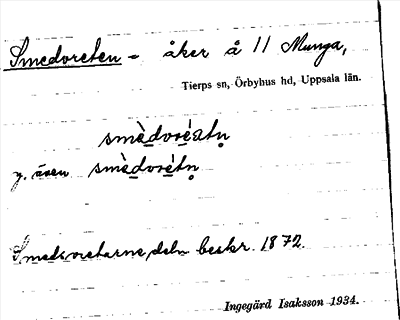 Smedvreten - åker å 11 Munga,
Tierps sn, Örbyhus hd, Uppsala län.
smèdvréatn̥
y. även smèdvrétn̥
Smedsvretarne, deln beskr. 1872.
Ingegärd Isaksson 1934.